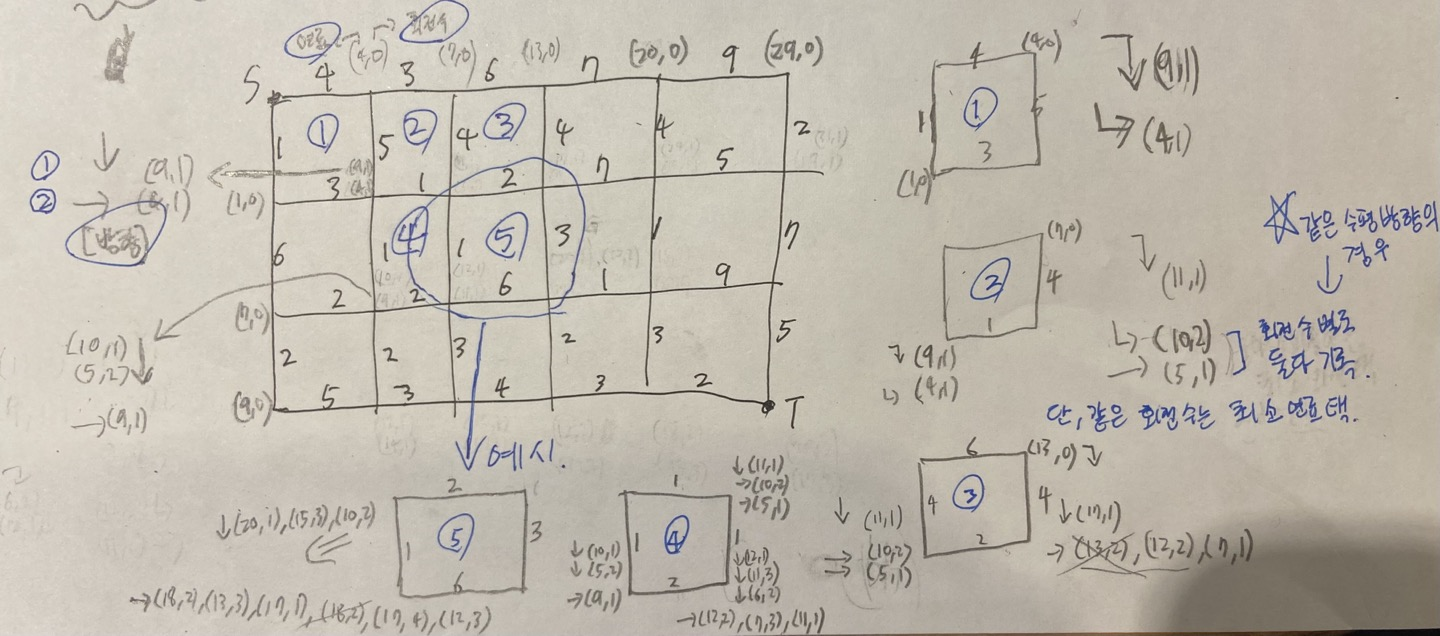 연료 → 회전수
S 4 (4,0) 3 (7,0) 6 (13,0) 7 (20,0) 9 (29,0)
1 ① 5 ② 4 ③ 4 4 2
3 1 2 7 5
(1,0)
6 1 ④ 1 ⑤ 3 1 7
2 2 6 1 9
(7,0)
2 2 3 2 3 5
(9,0) 5 3 4 3 2 T
① ↓ (9,1)
② → (4,1)
[방향]
(10,1) ↓
(5,2) ↓
→ (9,1)
예시.
4 (4,0)
1 ① 5
3
(1,0)
↓ (9,1)
↳ (4,1)
(7,0)
② 4
1
↴ (9,1)
↳ (4,1)
↴ (11,1)
↳ (10,2)
→ (5,1)
☆ 같은 수평방향의
경우
↓
회전수별로
둘다 기록.
단, 같은 회전수는 최소연료택.
6 (13,0) ↴
4 ③ 4
2
↓ (11,1)
→ (10,2)
→ (5,1)
↓ (17,1)
→ (13,2), (12,2), (7,1)
1
1 ④ 1
2
↓ (11,1)
→ (10,2)
→ (5,1)
↓ (10,1)
↓ (5,2)
→ (9,1)
↓ (12,1)
↓ (11,3)
↓ (6,2)
→ (12,2), (7,3), (11,1)
2
1 ⑤ 3
6
↓ (20,1), (15,3), (10,2)
→ (18,2), (13,3), (17,1), (18,2), (17,4), (12,3)